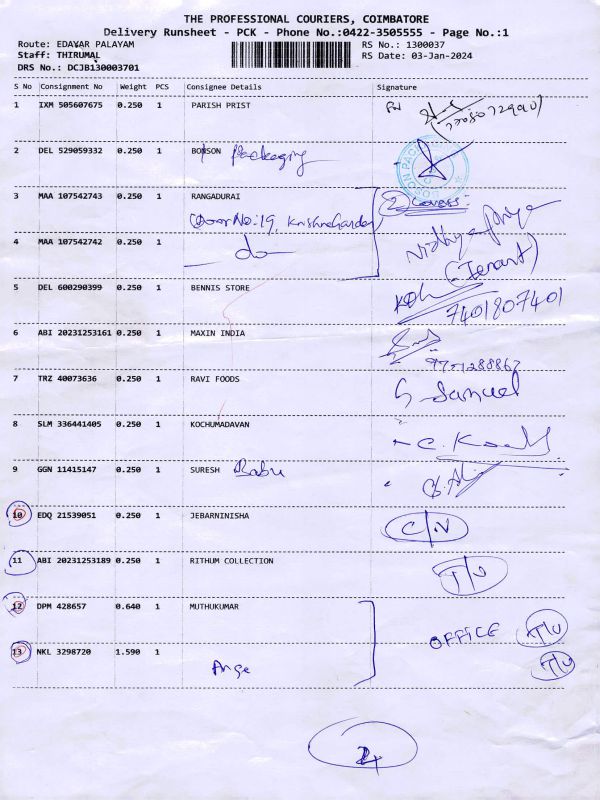 THE PROFESSIONAL COURIERS, COIMBATORE
Delivery Runsheet - PCK - Phone No.:0422-3505555 - Page No.:1
Route: EDAYAR PALAYAM RS No.: 1300037
Staff: THIRUMAL RS Date: 03-Jan-2024
DRS No.: DCJB130003701
S No Consignment No Weight PCS Consignee Details Signature
1 IXM 505607675 0.250 1 PARISH PRIST
2 DEL 529059332 0.250 1 BONSON Packaging
3 MAA 107542743 0.250 1 RANGADURAI 2 Covers
(Door No: 19, Krishna Garden)
4 MAA 107542742 0.250 1 do Nidhya Priya
(Tenant)
5 DEL 600290399 0.250 1 BENNIS STORE
7401807401
6 ABI 20231253161 0.250 1 MAXIN INDIA
7 TRZ 40073636 0.250 1 RAVI FOODS S. Samuel
8 SLM 336441405 0.250 1 KOCHUMADAVAN
9 GGN 11415147 0.250 1 SURESH Babu
10 EDQ 21539051 0.250 1 JEBARNINISHA C/N
11 ABI 20231253189 0.250 1 RITHUM COLLECTION T/U
12 DPM 428657 0.640 1 MUTHUKUMAR OFFICE T/U
13 NKL 3298720 1.590 1 T/U